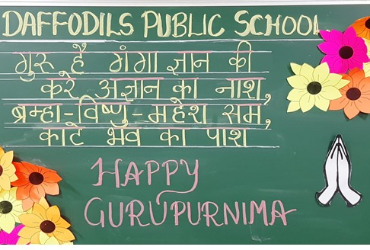 DAFFODILS PUBLIC SCHOOL
गुरू है गंगा ज्ञान की
करे अज्ञान का नाश,
ब्रम्हा-विष्णु-महेश सम,
काटे भव का पाश
HAPPY
GURUPURNIMA